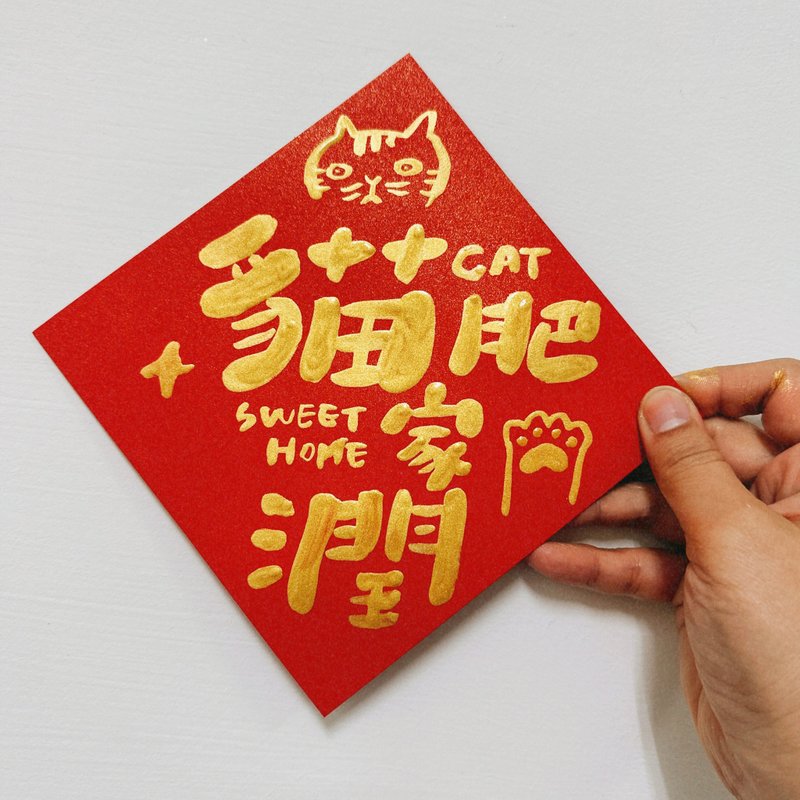 貓肥 CAT
SWEET HOME 家
潤